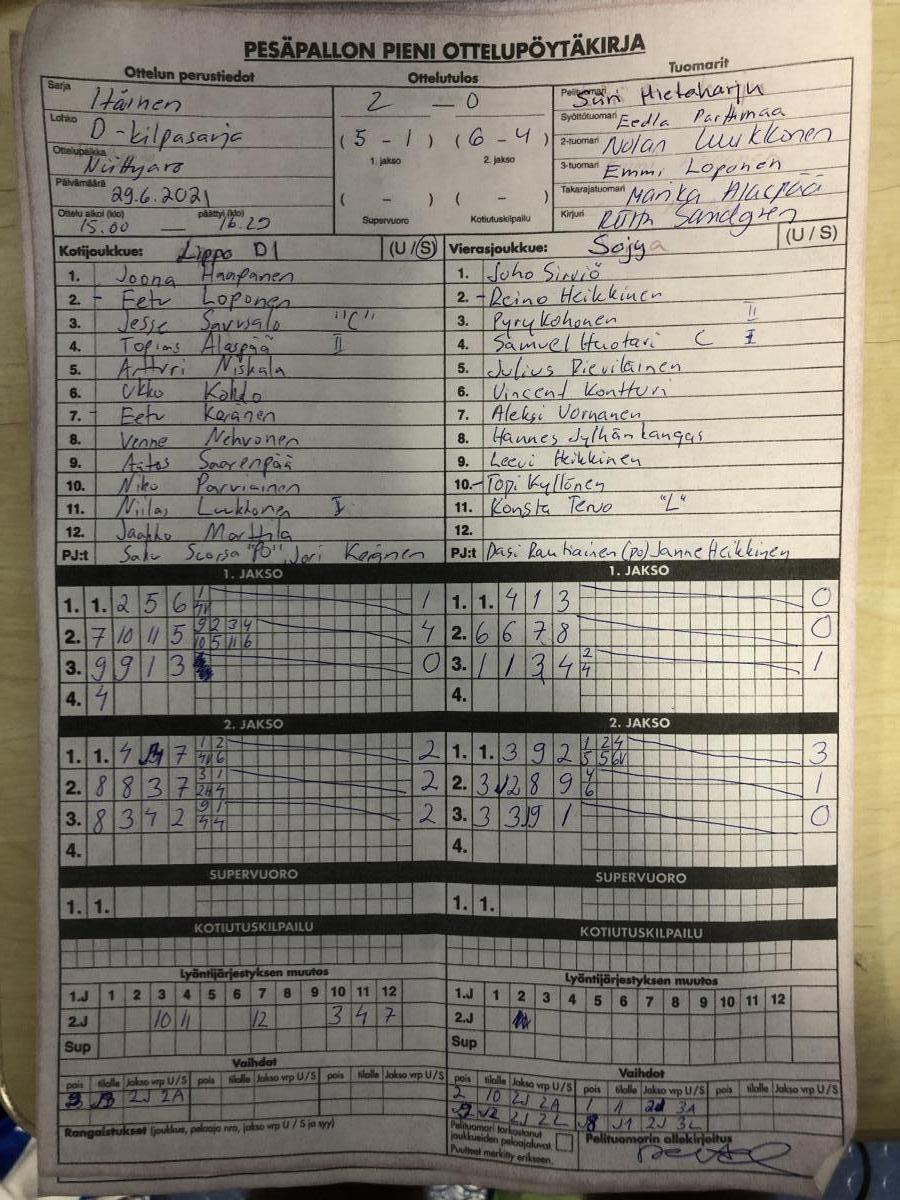 PESÄPALLON PIENI OTTELUPÖYTÄKIRJA
Ottelun perustiedot
Ottelutulos
Tuomarit
Sarja
Itäinen
Lohko
D-kilpasarja
Ottelupaikka
Niittyaro
Päivämäärä
29.6.2021
Ottelu alkoi (klo) päättyi (klo)
15.00 — 16.29
2 — 0
(5 - 1) (6 - 4)
1. jakso 2. jakso
( - ) ( - )
Supervuoro Kotiutuskilpailu
Pelituomari Siiri Hietaharju
Syöttötuomari Eedla Parttimaa
2-tuomari Nolan Luukkonen
3-tuomari Emmi Loponen
Takarajatuomari Marika Alaspää
Kirjuri Sandgren
Kotijoukkue: Lippo D1 (U/S)
1. Joona Haapanen
2. - Eetu Loponen
3. Jesse Savusalo "C"
4. Topias Alaspää II
5. Artturi Niskala
6. Ukko
7. - Eetu Keränen
8. Venne Nehvonen
9. Aatos Saarenpää
10. Niko Parviainen
11. Niilas Luukkonen I
12. Jaakko Marttila
PJ:t Saku "PO" Jori Keränen
Vierasjoukkue: Sojya (U/S)
1. Juho Sirviö
2. - Reino Heikkinen
3. Pyry Kohonen II
4. Samuel Huotari C I
5. Julius Pieviläinen
6. Vincent Kontturi
7. Aleksi Vornanen
8. Hannes Jylhänkangas
9. Leevi Heikkinen
10. - Topi Kyllönen
11. Konsta Tervo "L"
12.
PJ:t Pasi Rautiainen (po) Janne Heikkinen
1. JAKSO
1. 1. 2 5 6 1
2. 7 10 11 5 9 2 3 4 4
10 5 11 6
3. 9 9 1 3 0
4. 4
1. JAKSO
1. 1. 4 1 3 0
2. 6 6 7 8 0
3. 1 1 3 4 2 1
4
4.
2. JAKSO
1. 1. 4 7 1 2 2
2. 8 8 3 7 3 1 2
3. 8 3 4 2 9 1 2
4 4
4.
2. JAKSO
1. 1. 3 9 2 1 2 4 3
2. 3 8 9 4 1
6
3. 3 3 1 0
4.
SUPERVUORO
1. 1.
SUPERVUORO
1. 1.
KOTIUTUSKILPAILU
KOTIUTUSKILPAILU
Lyöntijärjestyksen muutos
1.J 1 2 3 4 5 6 7 8 9 10 11 12
2.J 10 11 12 3 4 7
Sup
Lyöntijärjestyksen muutos
1.J 1 2 3 4 5 6 7 8 9 10 11 12
2.J
Sup
Vaihdot
pois tilalle Jakso vrp U/S pois tilalle Jakso vrp U/S pois tilalle Jakso vrp U/S
2J 2A
Rangaistukset (joukkue, pelaaja nro, jakso vrp U / S ja syy)
Vaihdot
pois tilalle Jakso vrp U/S pois tilalle Jakso vrp U/S pois tilalle Jakso vrp U/S
2 10 2J 2A 1 11 3A
2J 2L 2J 3L
Pelituomari tarkastanut
joukkueiden peliasaluvat
Puutteet merkitty erikseen.
Pelituomarin allekirjoitus